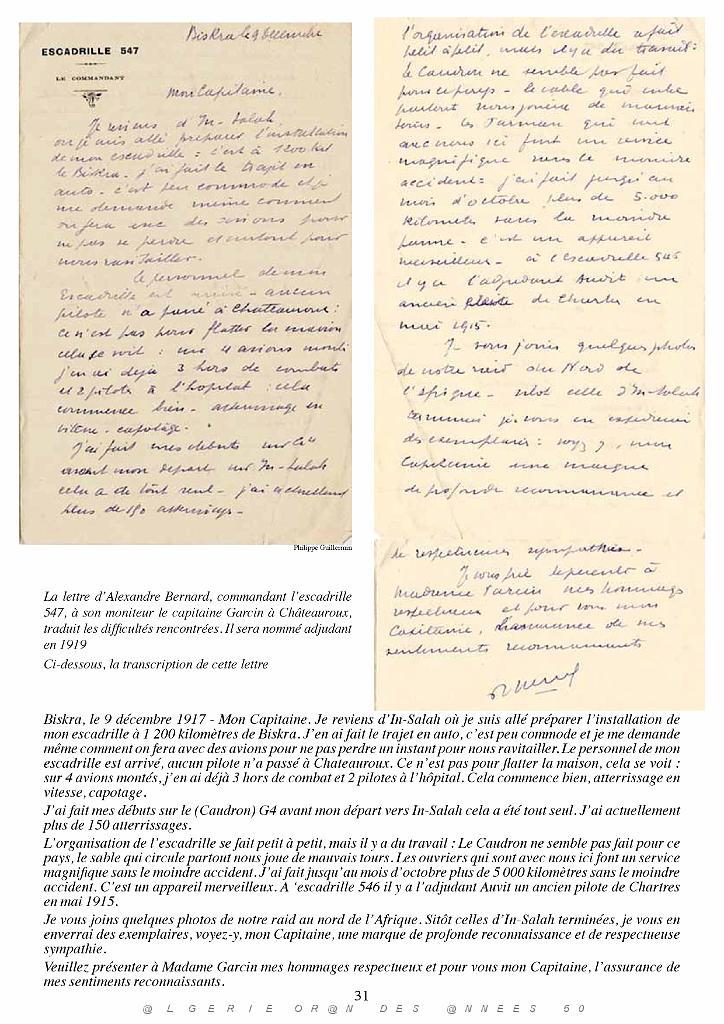 ESCADRILLE 547
LE COMMANDANT
Biskra le 9 decembre
Mon Capitaine,
Je reviens d'In-Salah
où je suis allé préparer l'installation
de mon escadrille : c'est à 1200 k de
Biskra - j'ai fait le trajet en
auto - c'est peu commode et je
me demande même comment
on fera avec des avions pour
ne pas se perdre et surtout pour
nous ravitailler.
Le personnel de mon
Escadrille est arrivé - aucun
pilote n'a passé à Chateauroux :
Ce n'est pas pour flatter la maison
cela se voit : sur 4 avions montés
j'en ai déjà 3 hors de combat
et 2 pilotes à l'hopital : cela
commence bien - atterrissage en
vitesse - capotage.
J'ai fait mes debuts sur G4
avant mon depart sur In-Salah
cela a été tout seul - j'ai actuellement
plus de 150 atterrissages -
l'organisation de l'escadrille se fait
petit à petit, mais il y a du travail :
le Caudron ne semble pas fait
pour ce pays - le sable qui entre
partout nous joue de mauvais
tours - les Farman qui sont
avec nous ici font un service
magnifique sans le moindre
accident : j'ai fait jusqu'au
mois d'octobre plus de 5.000
kilometres sans la moindre
panne - c'est un appareil
merveilleux - à l'Escadrille 546
il y a l'adjudant Auvit un
ancien pilote de Chartres en
mai 1915.
Je vous joins quelques photos
de notre raid du Nord de
l'Afrique - sitot celles d'In-Salah
terminées je vous en expedierai
des exemplaires : voyez y, mon
Capitaine une marque
de profonde reconnaissance et
de respectueuse sympathie -
Je vous prie de presenter à
Madame Garcin mes hommages
respectueux et pour vous mon
Capitaine, l'assurance de mes
sentiments reconnaissants
Philippe Guillermin
La lettre d'Alexandre Bernard, commandant l'escadrille
547, à son moniteur le capitaine Garcin à Châteauroux,
traduit les difficultés rencontrées. Il sera nommé adjudant
en 1919
Ci-dessous, la transcription de cette lettre
Biskra, le 9 décembre 1917 - Mon Capitaine. Je reviens d'In-Salah où je suis allé préparer l'installation de
mon escadrille à 1 200 kilomètres de Biskra. J'en ai fait le trajet en auto, c'est peu commode et je me demande
même comment on fera avec des avions pour ne pas perdre un instant pour nous ravitailler. Le personnel de mon
escadrille est arrivé, aucun pilote n'a passé à Chateauroux. Ce n'est pas pour flatter la maison, cela se voit :
sur 4 avions montés, j'en ai déjà 3 hors de combat et 2 pilotes à l'hôpital. Cela commence bien, atterrissage en
vitesse, capotage.
J'ai fait mes débuts sur le (Caudron) G4 avant mon départ vers In-Salah cela a été tout seul. J'ai actuellement
plus de 150 atterrissages.
L'organisation de l'escadrille se fait petit à petit, mais il y a du travail : Le Caudron ne semble pas fait pour ce
pays, le sable qui circule partout nous joue de mauvais tours. Les ouvriers qui sont avec nous ici font un service
magnifique sans le moindre accident. J'ai fait jusqu'au mois d'octobre plus de 5 000 kilomètres sans le moindre
accident. C'est un appareil merveilleux. A 'escadrille 546 il y a l'adjudant Auvit un ancien pilote de Chartres
en mai 1915.
Je vous joins quelques photos de notre raid au nord de l'Afrique. Sitôt celles d'In-Salah terminées, je vous en
enverrai des exemplaires, voyez-y, mon Capitaine, une marque de profonde reconnaissance et de respectueuse
sympathie.
Veuillez présenter à Madame Garcin mes hommages respectueux et pour vous mon Capitaine, l'assurance de
mes sentiments reconnaissants.
31
@ L G E R I E O R @ N D E S @ N N E E S 5 0